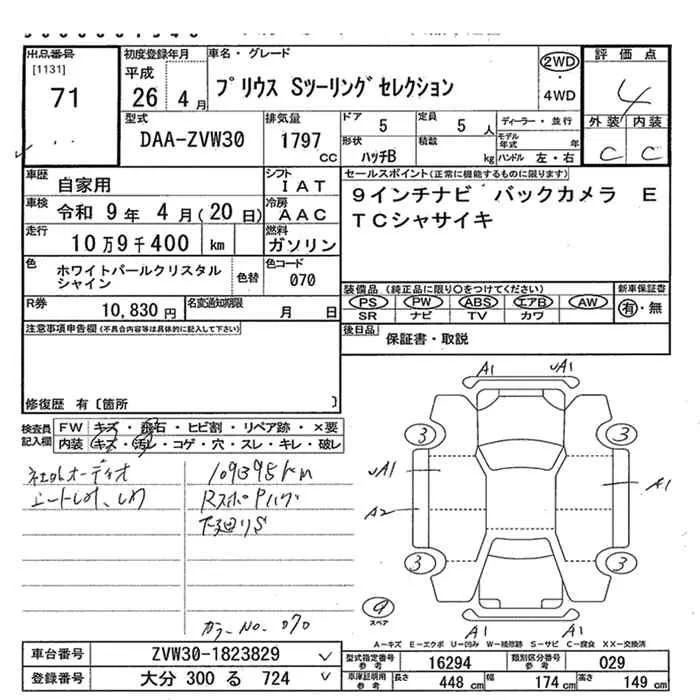 出品番号
[1131]
71
初度登録年月
平成
26 年 4 月
車名・グレード
プリウス Sツーリングセレクション
2WD
・
4WD
評価点
4
外装 内装
C C
型式
DAA-ZVW30
排気量
1797
CC
ドア 5
定員 5 人
ディーラー・並行
モデル年式 年
形状 ハッチB
積載 kg
ハンドル 左・右
車歴 自家用
シフト IAT
セールスポイント(正常に機能するものに限ります)
9インチナビ バックカメラ E
TCシャサイキ
車検 令和 9 年 4 月 (20 日)
冷房 AAC
走行 10万9千400 km
燃料 ガソリン
色 ホワイトパールクリスタル
シャイン
色替
色コード
070
装備品 (純正品に限り○をつけてください)
PS PW ABS エアB AW
SR ナビ TV カワ
新車保証書
有・無
R券 10,830 円
名変通知期限 月 日
後日品 保証書・取説
注意事項申告欄(不具合内容等は具体的に記入して下さい)
修復歴 有〔箇所 〕
検査員
記入欄
FW キズ・飛石・ヒビ割・リペア跡・×要
内装 キズ・汚レ・コゲ・穴・スレ・キレ・破レ
109395km
下廻りS
カラーNo. 070
A1 A1
3 3
A1 A1
A2
3 3
スペア
A－キズ E－エクボ U－凹み W－補修跡 S－サビ C－腐食 XX－交換済
車台番号 ZVW30-1823829
登録番号 大分 300 る 724
型式指定番号
参考
16294
類別区分番号
参考
029
車庫証明用
参考
長さ 448 cm 幅 174 cm 高さ 149 cm